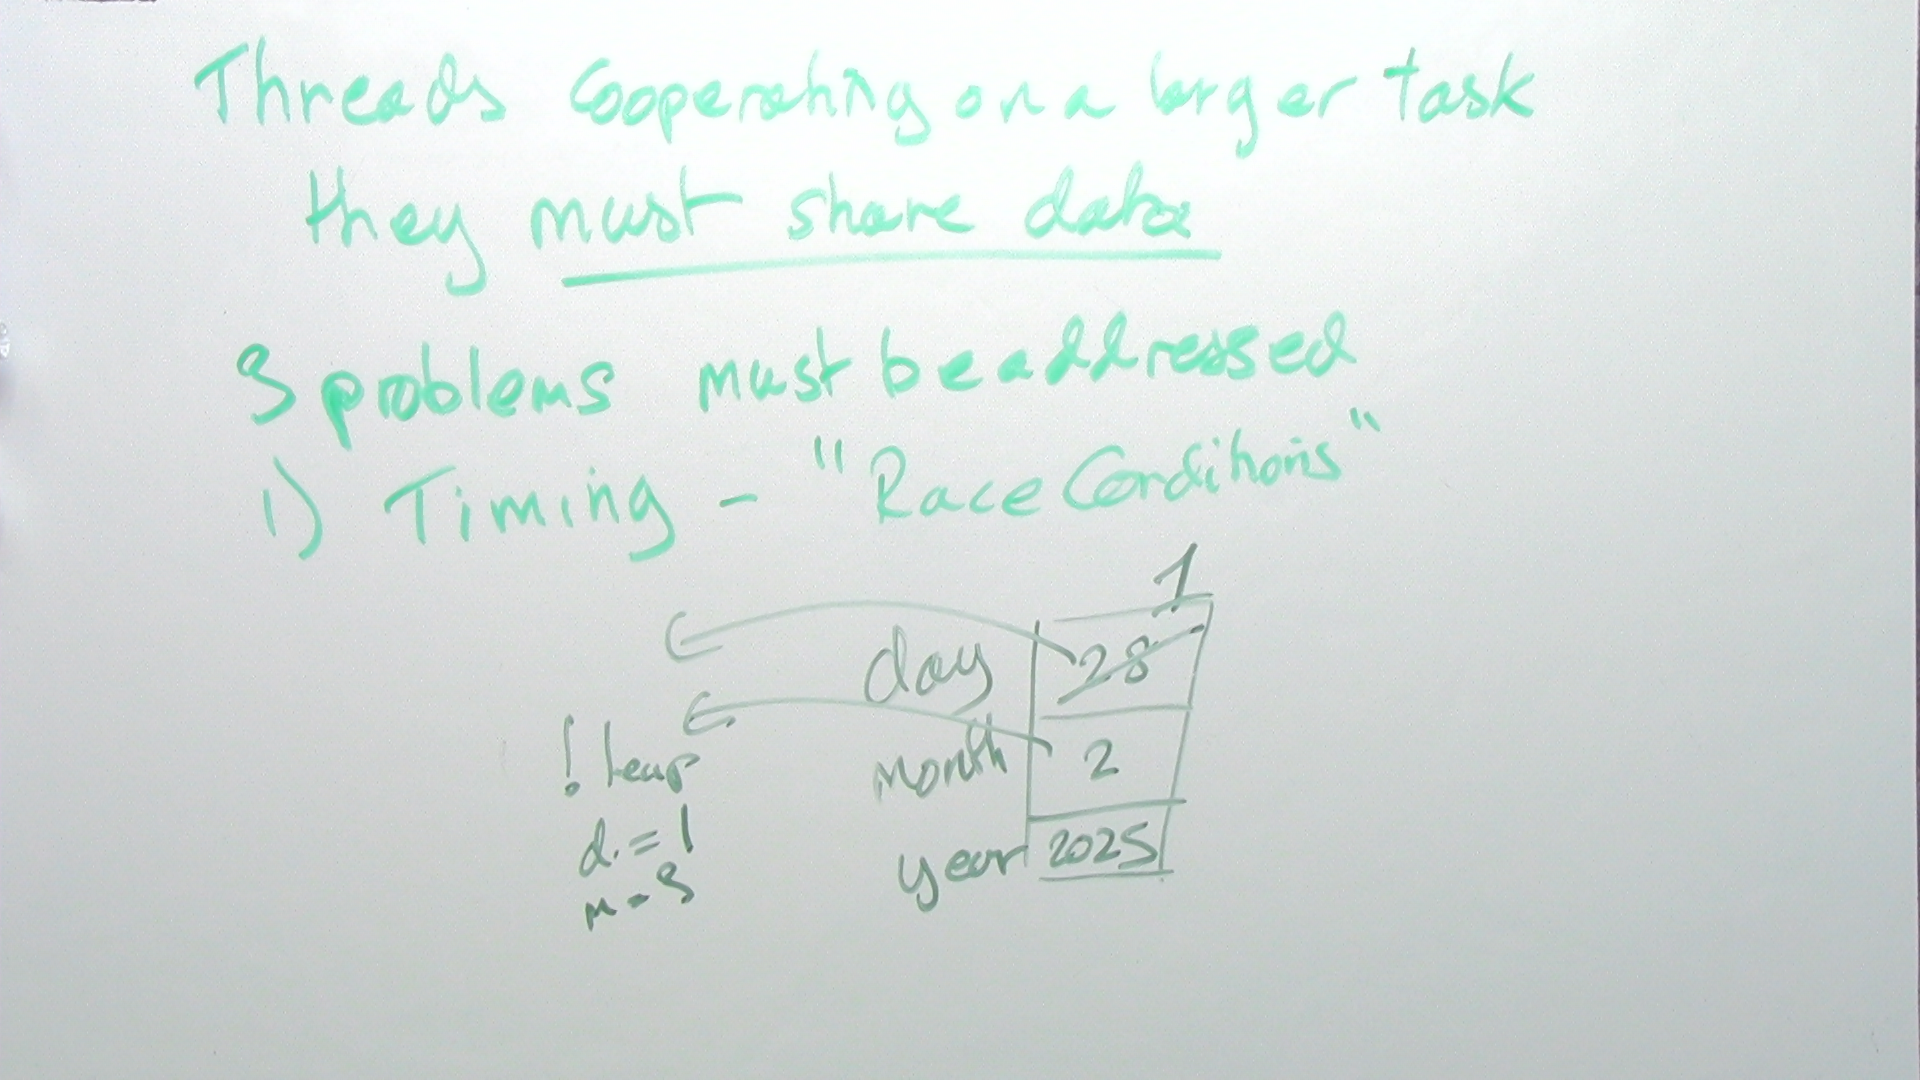 Threads Cooperating on a larger task
they must share data
3 problems must be addressed
1) Timing - "Race Conditions"
1
day 28
month 2
year 2025
! leap
d = 1
m = 3